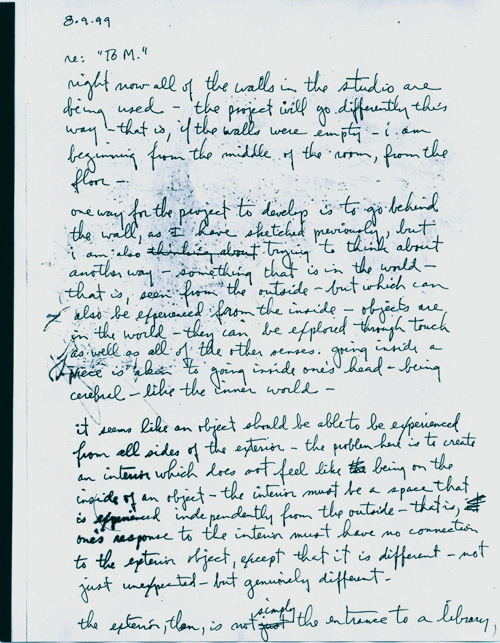 8.9.99
re: "To M."
right now all of the walls in the studio are
being used – the project will go differently this
way – that is, if the walls were empty – i am
beginning from the middle of the room, from the
floor –
one way for the project to develop is to go behind
the wall, as I have sketched previously, but
i am also thinking about trying to think about
another way – something that is in the world –
that is, seen from the outside – but which can
also be experienced from the inside – objects are
in the world – they can be explored through touch
as well as all of the other senses. going inside a
piece is akin to going inside one's head – being
cerebral – like the inner world –
it seems like an object should be able to be experienced
from all sides of the exterior – the problem here is to create
an interior which does not feel like the being on the
inside of an object – the interior must be a space that
is experienced independently from the outside – that is,
one's response to the interior must have no connection
to the exterior object, except that it is different – not
just unexpected – but genuinely different –
the exterior, then, is not just simply the entrance to a library,